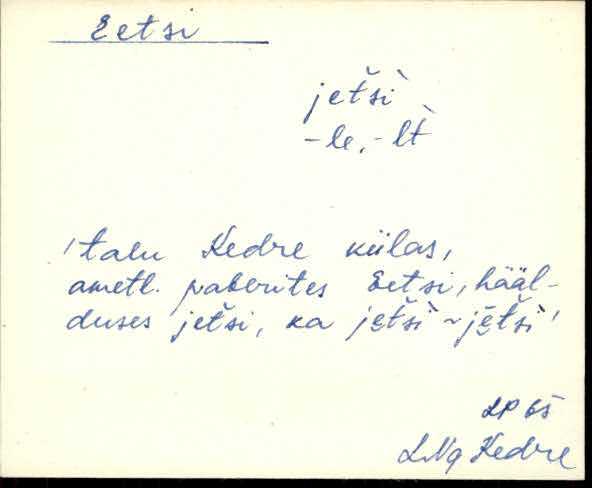 Eetsi
jetšì
-le, -lt̀
'talu Kedre külas,
ametl. paberites Eetsi, hääl-
duses jetši, ka je̮tšì ~ jē̮tšì'
LP 65
LNg Kedre